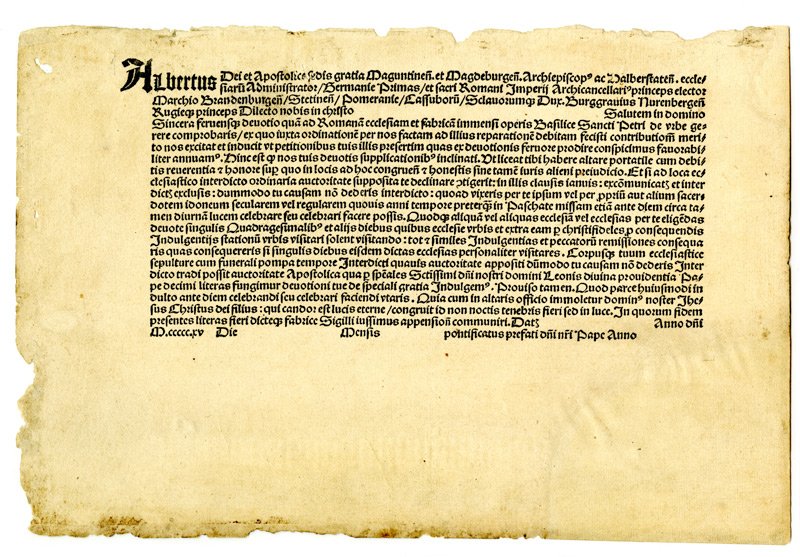 Albertus Dei et Apostolice sedis gratia Maguntineñ. et Magdeburgeñ. Archiepiscopꝰ ac Halberstateñ. eccle-
siarũ Administrator/Germanie Primas/et sacri Romani Imperij Archicancellariꝰ princeps elector
Marchio Brandenburgeñ/Stetineñ/Pomeranie/Cassuborũ/Sclauorumqꝫ Dux. Burggrauius Nurenbergeñ
Rugieqꝫ princeps Dilecto nobis in christo Salutem in domino
Sincera feruensqꝫ deuotio quã ad Romanã ecclesiam et fabricã immensi operis Basilice Sancti Petri de vrbe ge-
rere comprobaris/ex quo iuxta ordinationẽ per nos factam ad illius reparationẽ debitam fecisti contributioñ meri-
to nos excitat et inducit vt petitionibus tuis illis presertim quas ex deuotionis feruore prodire conspicimus fauorabi-
liter annuamꝰ. Hinc est ꝙ nos tuis deuotis supplicationibꝰ inclinati. Vt liceat tibi habere altare portatile cum debi-
tis reuerentia ⁊ honore suꝑ quo in locis ad hoc congrueñ ⁊ honestis sine tamẽ iuris alieni preiudicio. Et si ad loca ec-
clesiastico interdicto ordinaria auctoritate supposita te declinare ↄtigerit: in illis clausis ianuis: excõmunicatꝫ et inter
dictꝫ exclusis: dummodo tu causam nõ dederis interdicto: quoad vixeris per te ipsum vel per ꝓpriũ aut alium sacer-
dotem idoneum secularem vel regularem quouis anni tempore preterqꝫ in Paschate missam etiã ante diem circa ta-
men diurnã lucem celebrare seu celebrari facere possis. Quodqꝫ aliquã vel aliquas ecclesiã vel ecclesias per te eligẽdas
deuote singulis Quadragesimalibꝰ et alijs diebus quibus ecclesie vrbis et extra eam ꝑ christifideles ꝓ consequendis
Indulgentijs stationũ vrbis visitari solent visitando: tot ⁊ similes Indulgentias et peccatorũ remissiones consequa
ris quas consequereris si singulis diebus eisdem dictas ecclesias personaliter visitares. Corpusqꝫ tuum ecclesiastice
sepulture cum funerali pompa tempore Interdicti quauis auctoritate appositi dũmodo tu causam nõ dederis Inter
dicto tradi possit auctoritate Apostolica qua ꝑ spẽales Sctissimi dñi nostri domini Leonis diuina prouidentia Pa-
pe decimi literas fungimur deuotioni tue de speciali gratia Indulgemꝰ. Prouiso tamen. Quod parce huiusmodi in
dulto ante diem celebrandi seu celebrari faciendi vtaris. Quia cum in altaris officio immoletur dominꝰ noster Ihe-
sus Christus dei filius: qui candor est lucis eterne/congruit id non noctis tenebris fieri sed in luce. In quorum fidem
presentes literas fieri dicteqꝫ fabrice Sigilli iussimus appensioñ communiri. Datꝫ Anno dñi
M.ccccc.xv Die Mensis pontificatus prefati dñi nr̃i Pape Anno